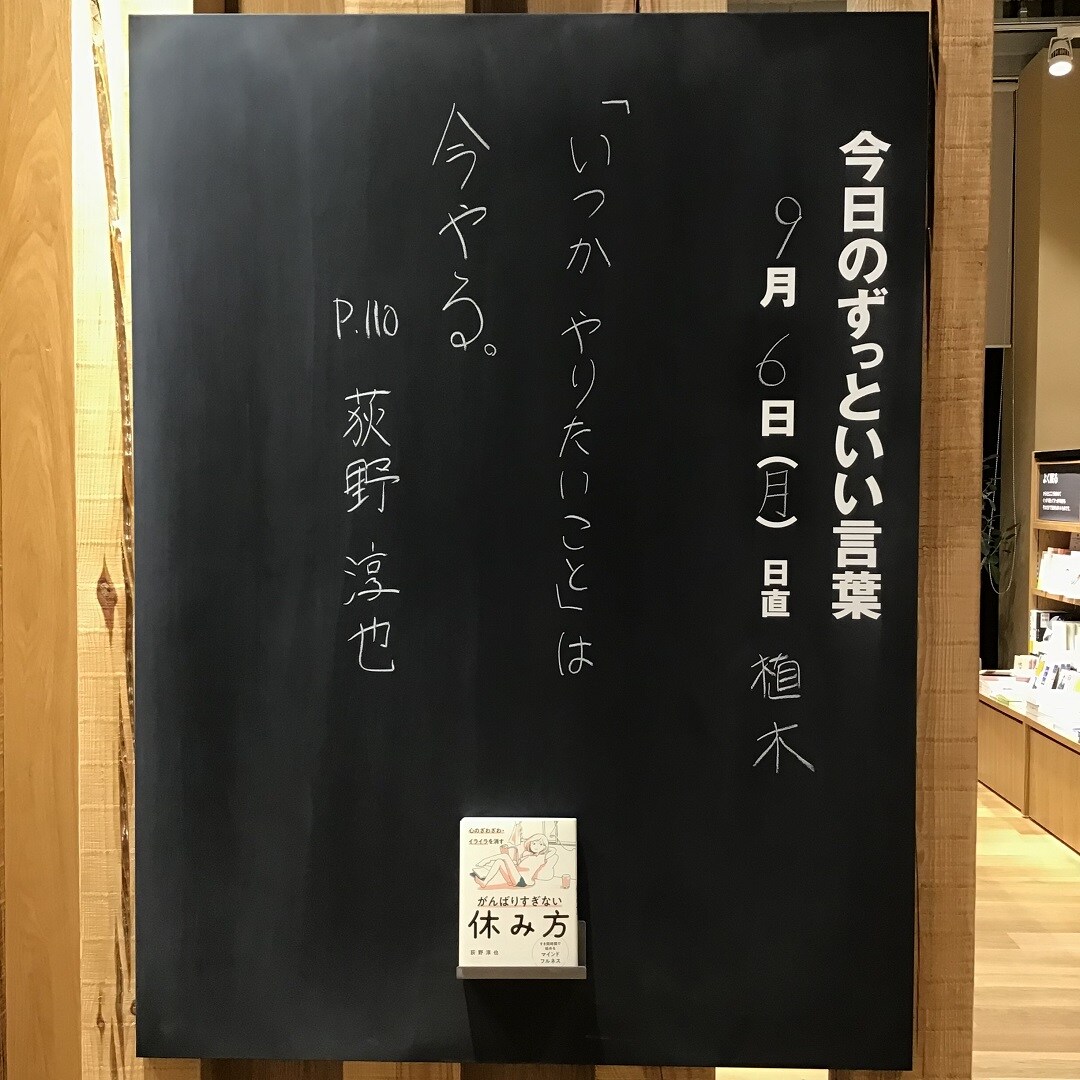 今日のずっといい言葉
9月6日(月) 日直 植木
「いつか やりたいこと」は
今やる。
P.110 荻野 淳也
心のざわざわ・
イライラを消す
がんばりすぎない
休み方
荻野淳也
すき間時間で
始める
マインド
フルネス
よく眠る